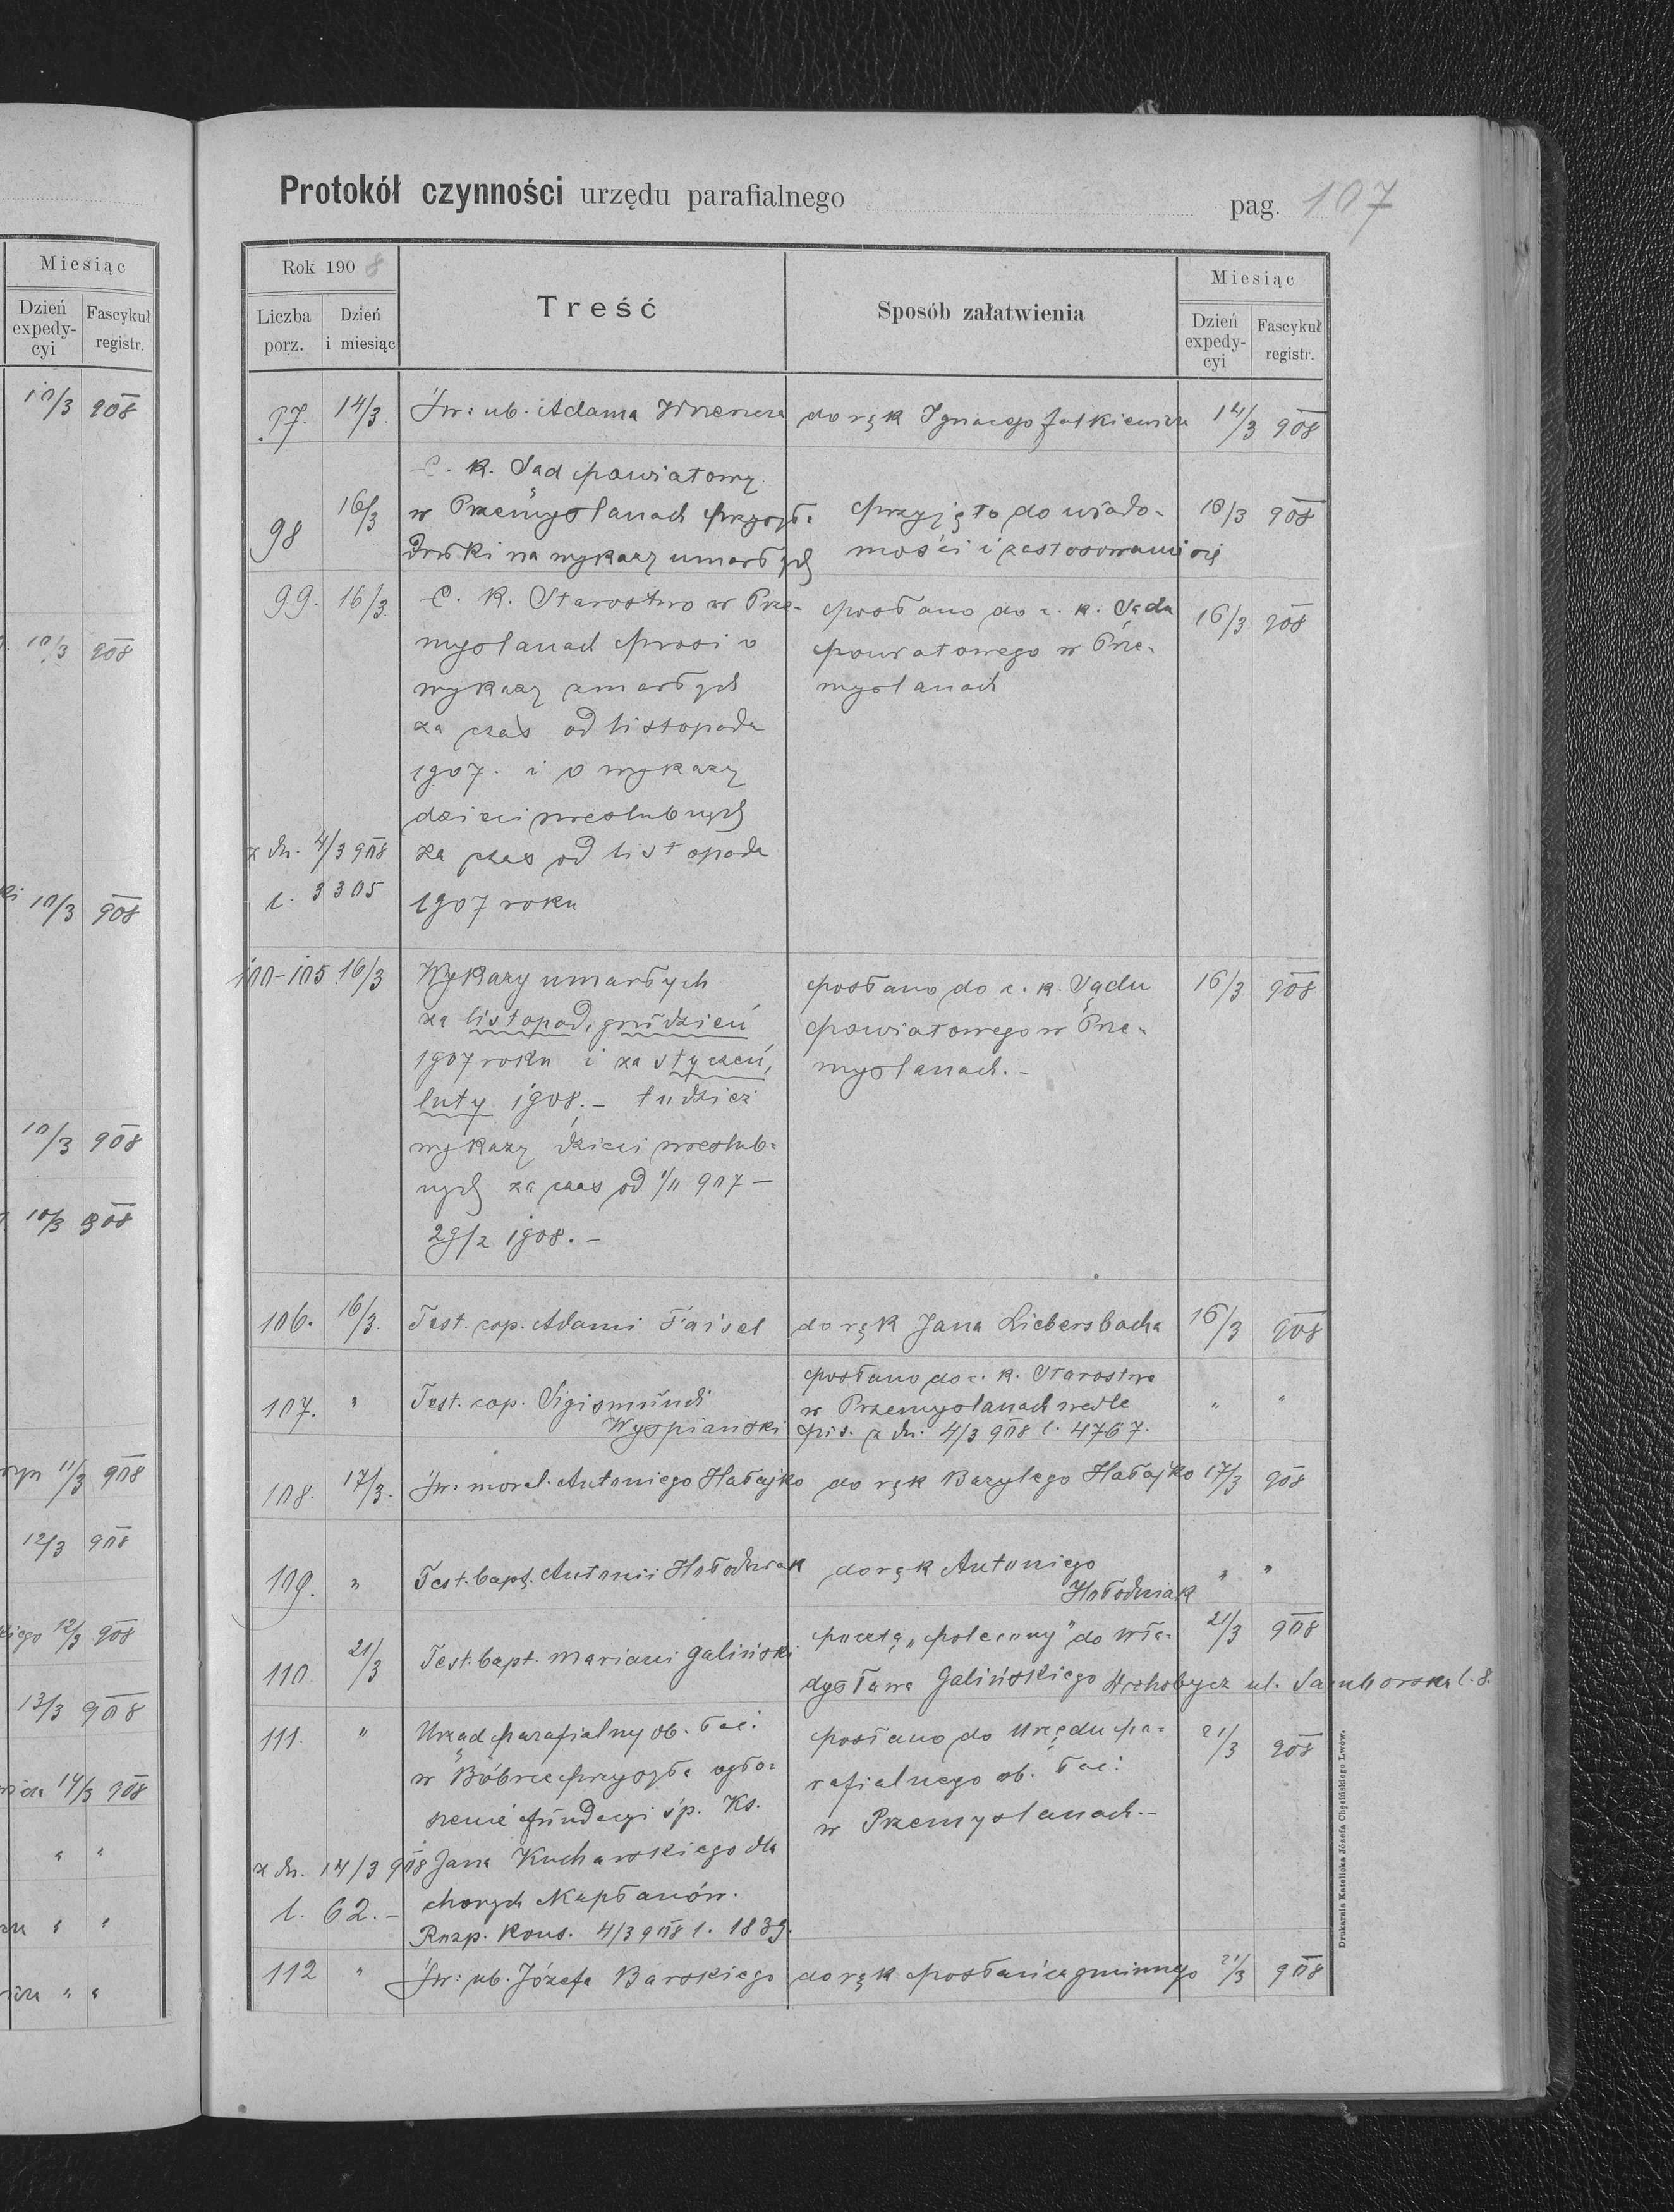 Miesiąc
Dzień expedycyi
Fascykuł registr.
10/3 908
10/3 908
10/3 908
10/3 908
10/3 908
11/3 908
12/3 908
12/3 908
13/3 908
14/3 908
" "
" "
" "
Protokół czynności urzędu parafialnego pag. 107
Rok 1908
Treść
Sposób załatwienia
Miesiąc
Liczba porz.
Dzień i miesiąc
Dzień expedy-
cyi
Fascykuł registr.
97. 14/3. Św: ub. Adama do rąk Ignacego 14/3 908
C. K. Sąd powiatowy
98 16/3 w Przemyślanach przysyła przyjęto do wiado- 16/3 908
druki na wykazy umarłych mości i zastosowania się
99. 16/3. C. K. Starostwo w Prze- posłano do c. k. Sądu 16/3 908
myślanach prosi o powiatowego w Prze-
wykazy zmarłych myślanach
za czas od listopada
1907. i o wykazy
dzieci nieślubnych
z dn. 4/3 908 za czas od listopada
l. 3305 1907 roku
100-105 16/3 Wykazy umarłych posłano do c. k. Sądu 16/3 908
za listopad, grudzień powiatowego w Prze-
1907 roku i za styczeń, myślanach.-
luty 1908.- tudzież
wykazy dzieci nieślub-
nych za czas od 1/11 907 -
29/2 1908.-
106. 16/3. Test. cop. Adami Faisel do rąk Jana Liebersbacha 16/3 908
posłano do c. k. Starostwa
107. " Test. cop. Sigismundi w Przemyślanach wedle " "
Wyspianski pis. z dn. 4/3 908 l. 4767.
108. 17/3. Św. moral. Antoniego Hałajko do rąk Bazylego Hałajko 17/3 908
109. " Test. bapt. Antonii Hołodniak do rąk Antoniego " "
Hołodniak
110 21/3 Test. bapt. Mariani Galiński pocztą "polecony" do Wła- 21/3 908
dysława Galińskiego Drohobycz ul. Samborska l. 8.
111. " Urząd parafialny ob. łać. posłano do Urzędu pa- 21/3 908
w Bóbrce przysyła ogło- rafialnego ob. łać.
szenie fundacyi śp. Ks. w Przemyślanach.-
z dn. 14/3 908 Jana Kucharskiego dla
l. 62.- chorych Kapłanów.
Rozp. Kons. 4/3 908 l. 1839.
112 " Św: ub. Józefa Barskiego do rąk posłańca gminnego 21/3 908
Drukarnia Katolicka Józefa Chęcińskiego Lwów.